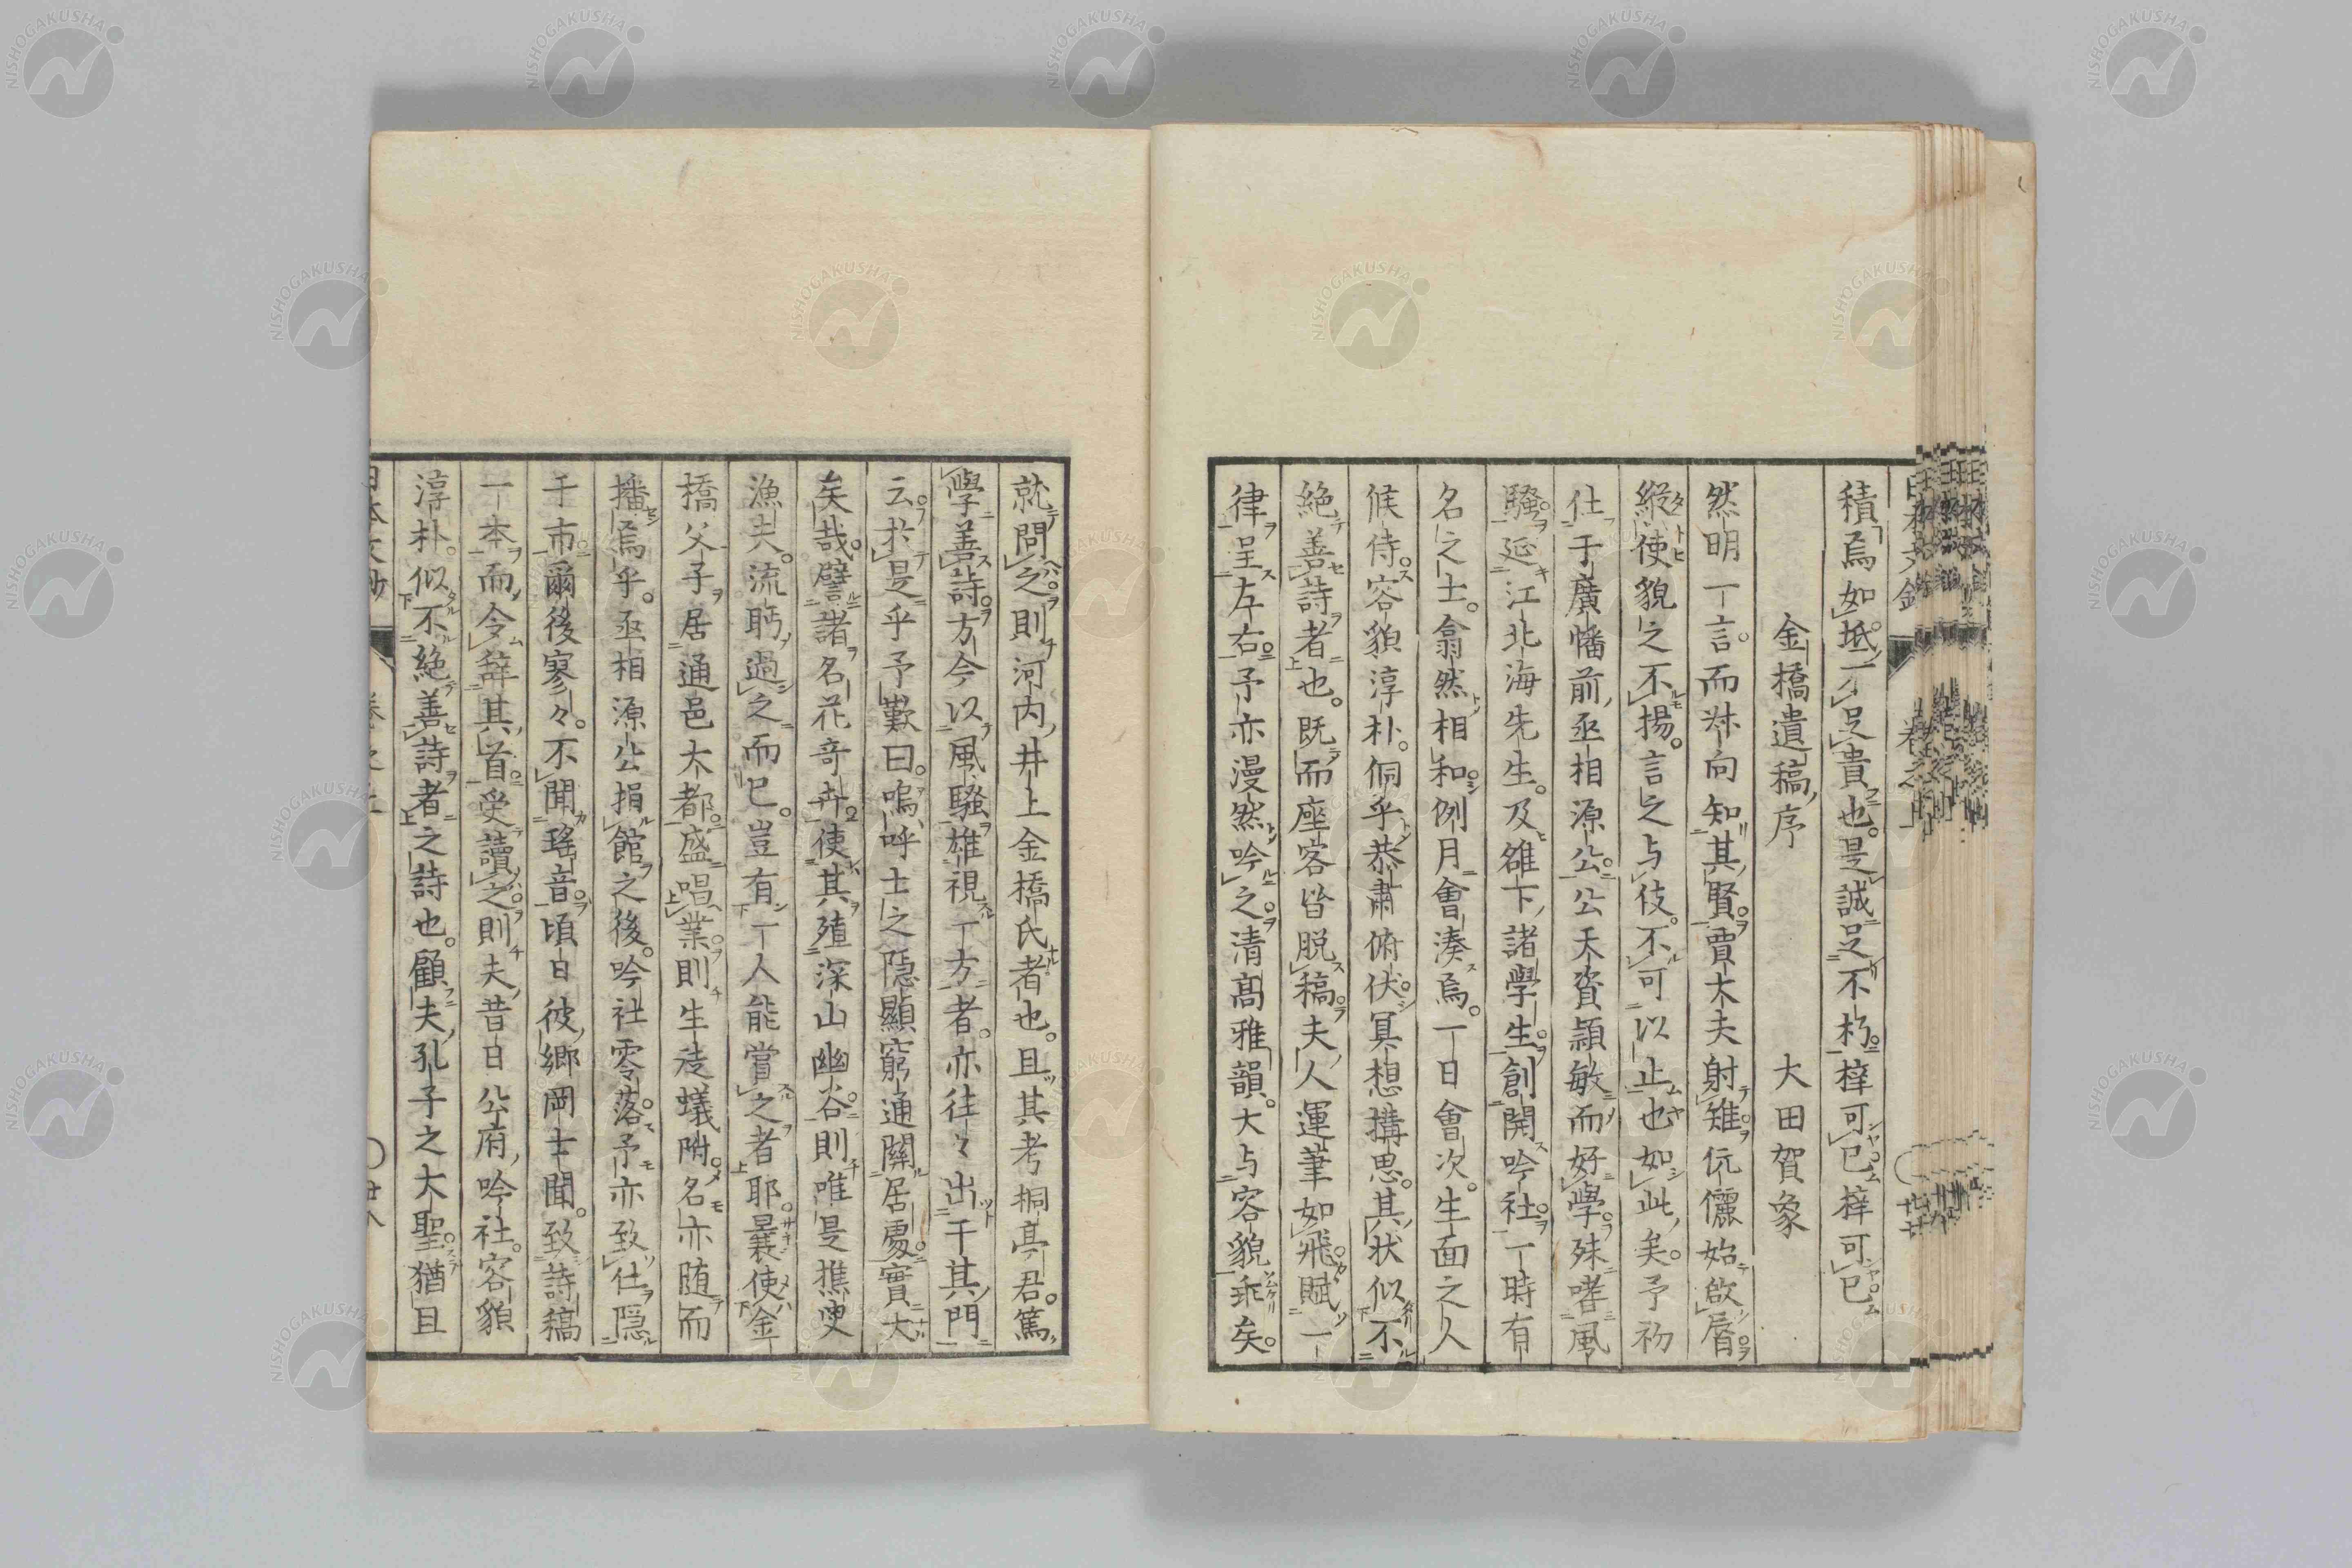 積焉如坻不足貴也是誠足不朽梓可已梓可已
金橋遺稿序
大田賀象
然明一言而叔向知其賢賈大夫射雉伉儷始啟脣
縱使貌之不揚言之与伎不可以止也如此矣予初
仕于廣幡前丞相源公公天資穎敏而好學殊嗜風
騷延江北海先生及雒下諸學生創開吟社一時有
名之士翕然相和例月會湊焉一日會次生面之人
候侍容貌淳朴侗乎恭肅俯伏冥想構思其狀似不
絕善詩者也既而座客皆脱稿夫人運筆如飛賦一
律呈左右予亦漫然吟之清高雅韻大与容貌乖矣
就問之則河内井上金橋氏者也且其考桐亭君篤
學善詩方今以風騷雄視一方者亦往々出于其門
云於是乎予歎曰嗚呼士之隱顯窮通關居處實大
矣哉譬諸名花奇卉使其殖深山幽谷則唯是樵叟
漁夫流眄過之而已豈有一人能賞之者耶曩使金
橋父子居通邑大都盛唱業則生徒蟻附名亦随而
播焉乎丞相源公捐館之後吟社零落予亦致仕隱
于市爾後寥々不聞瑤音頃日彼鄉岡士聞致詩稿
一本而令辞其首受讀之則夫昔日公府吟社容貌
淳朴似不絕善詩者之詩也顧夫孔子之大聖猶且